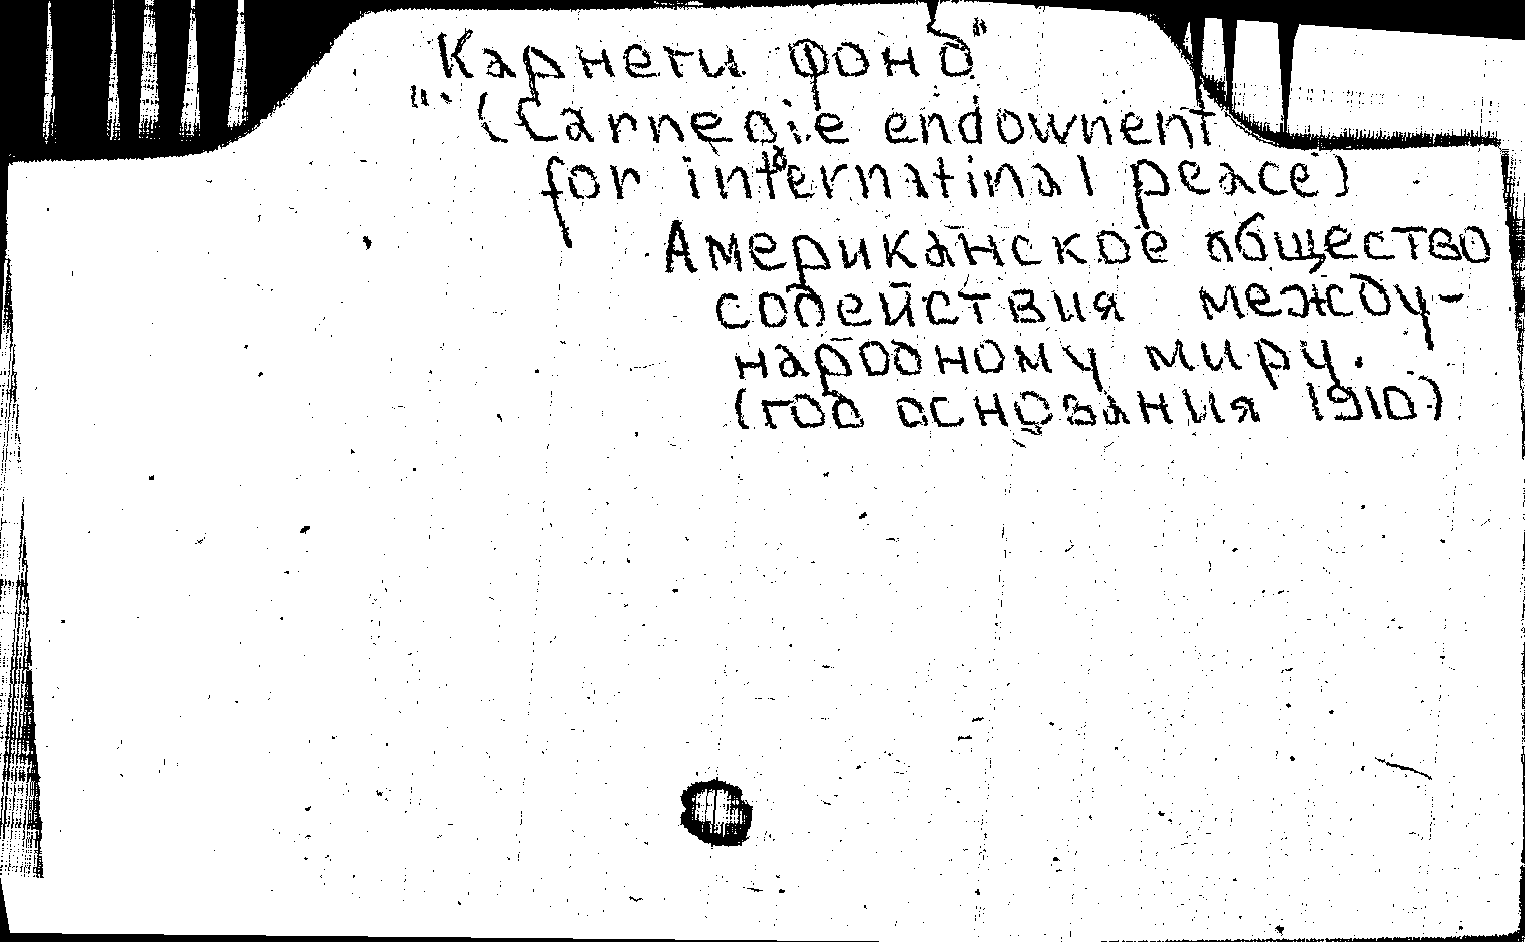 "Карнеги фонд"
(Carnegie endownent
for internatinal peace)
Американское общество
содействия между-
народному миру.
(год основания 1910)